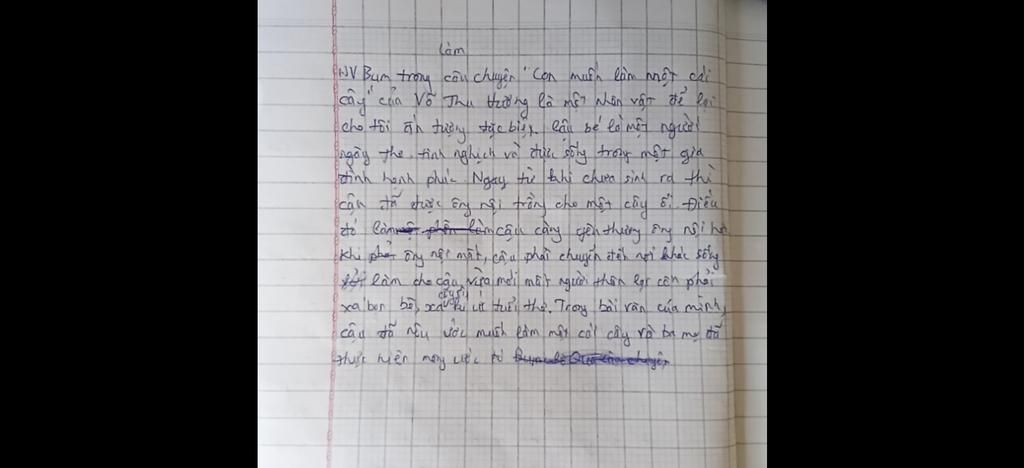 Làm
NV Bum trong câu chuyện "Con muốn làm một cái
cây" của Võ Thu Hương là một nhân vật để lại
cho tôi ấn tượng đặc biệt. Cậu bé là một người
ngây thơ, tinh nghịch và được sống trong một gia
đình hạnh phúc. Ngay từ khi chưa sinh ra thì
cậu đã được ông nội trồng cho một cây ổi. Điều
đó làm cậu càng yêu thương ông nội hơn
Khi ông nội mất, cậu phải chuyển đến nơi khác sống
làm cho cậu vừa mới mất người thân lại còn phải
xa bạn bè, xa cây ổi kí ức tuổi thơ. Trong bài văn của mình,
cậu đã nêu ước muốn làm một cái cây và ba mẹ đã
thực hiện mong ước đó